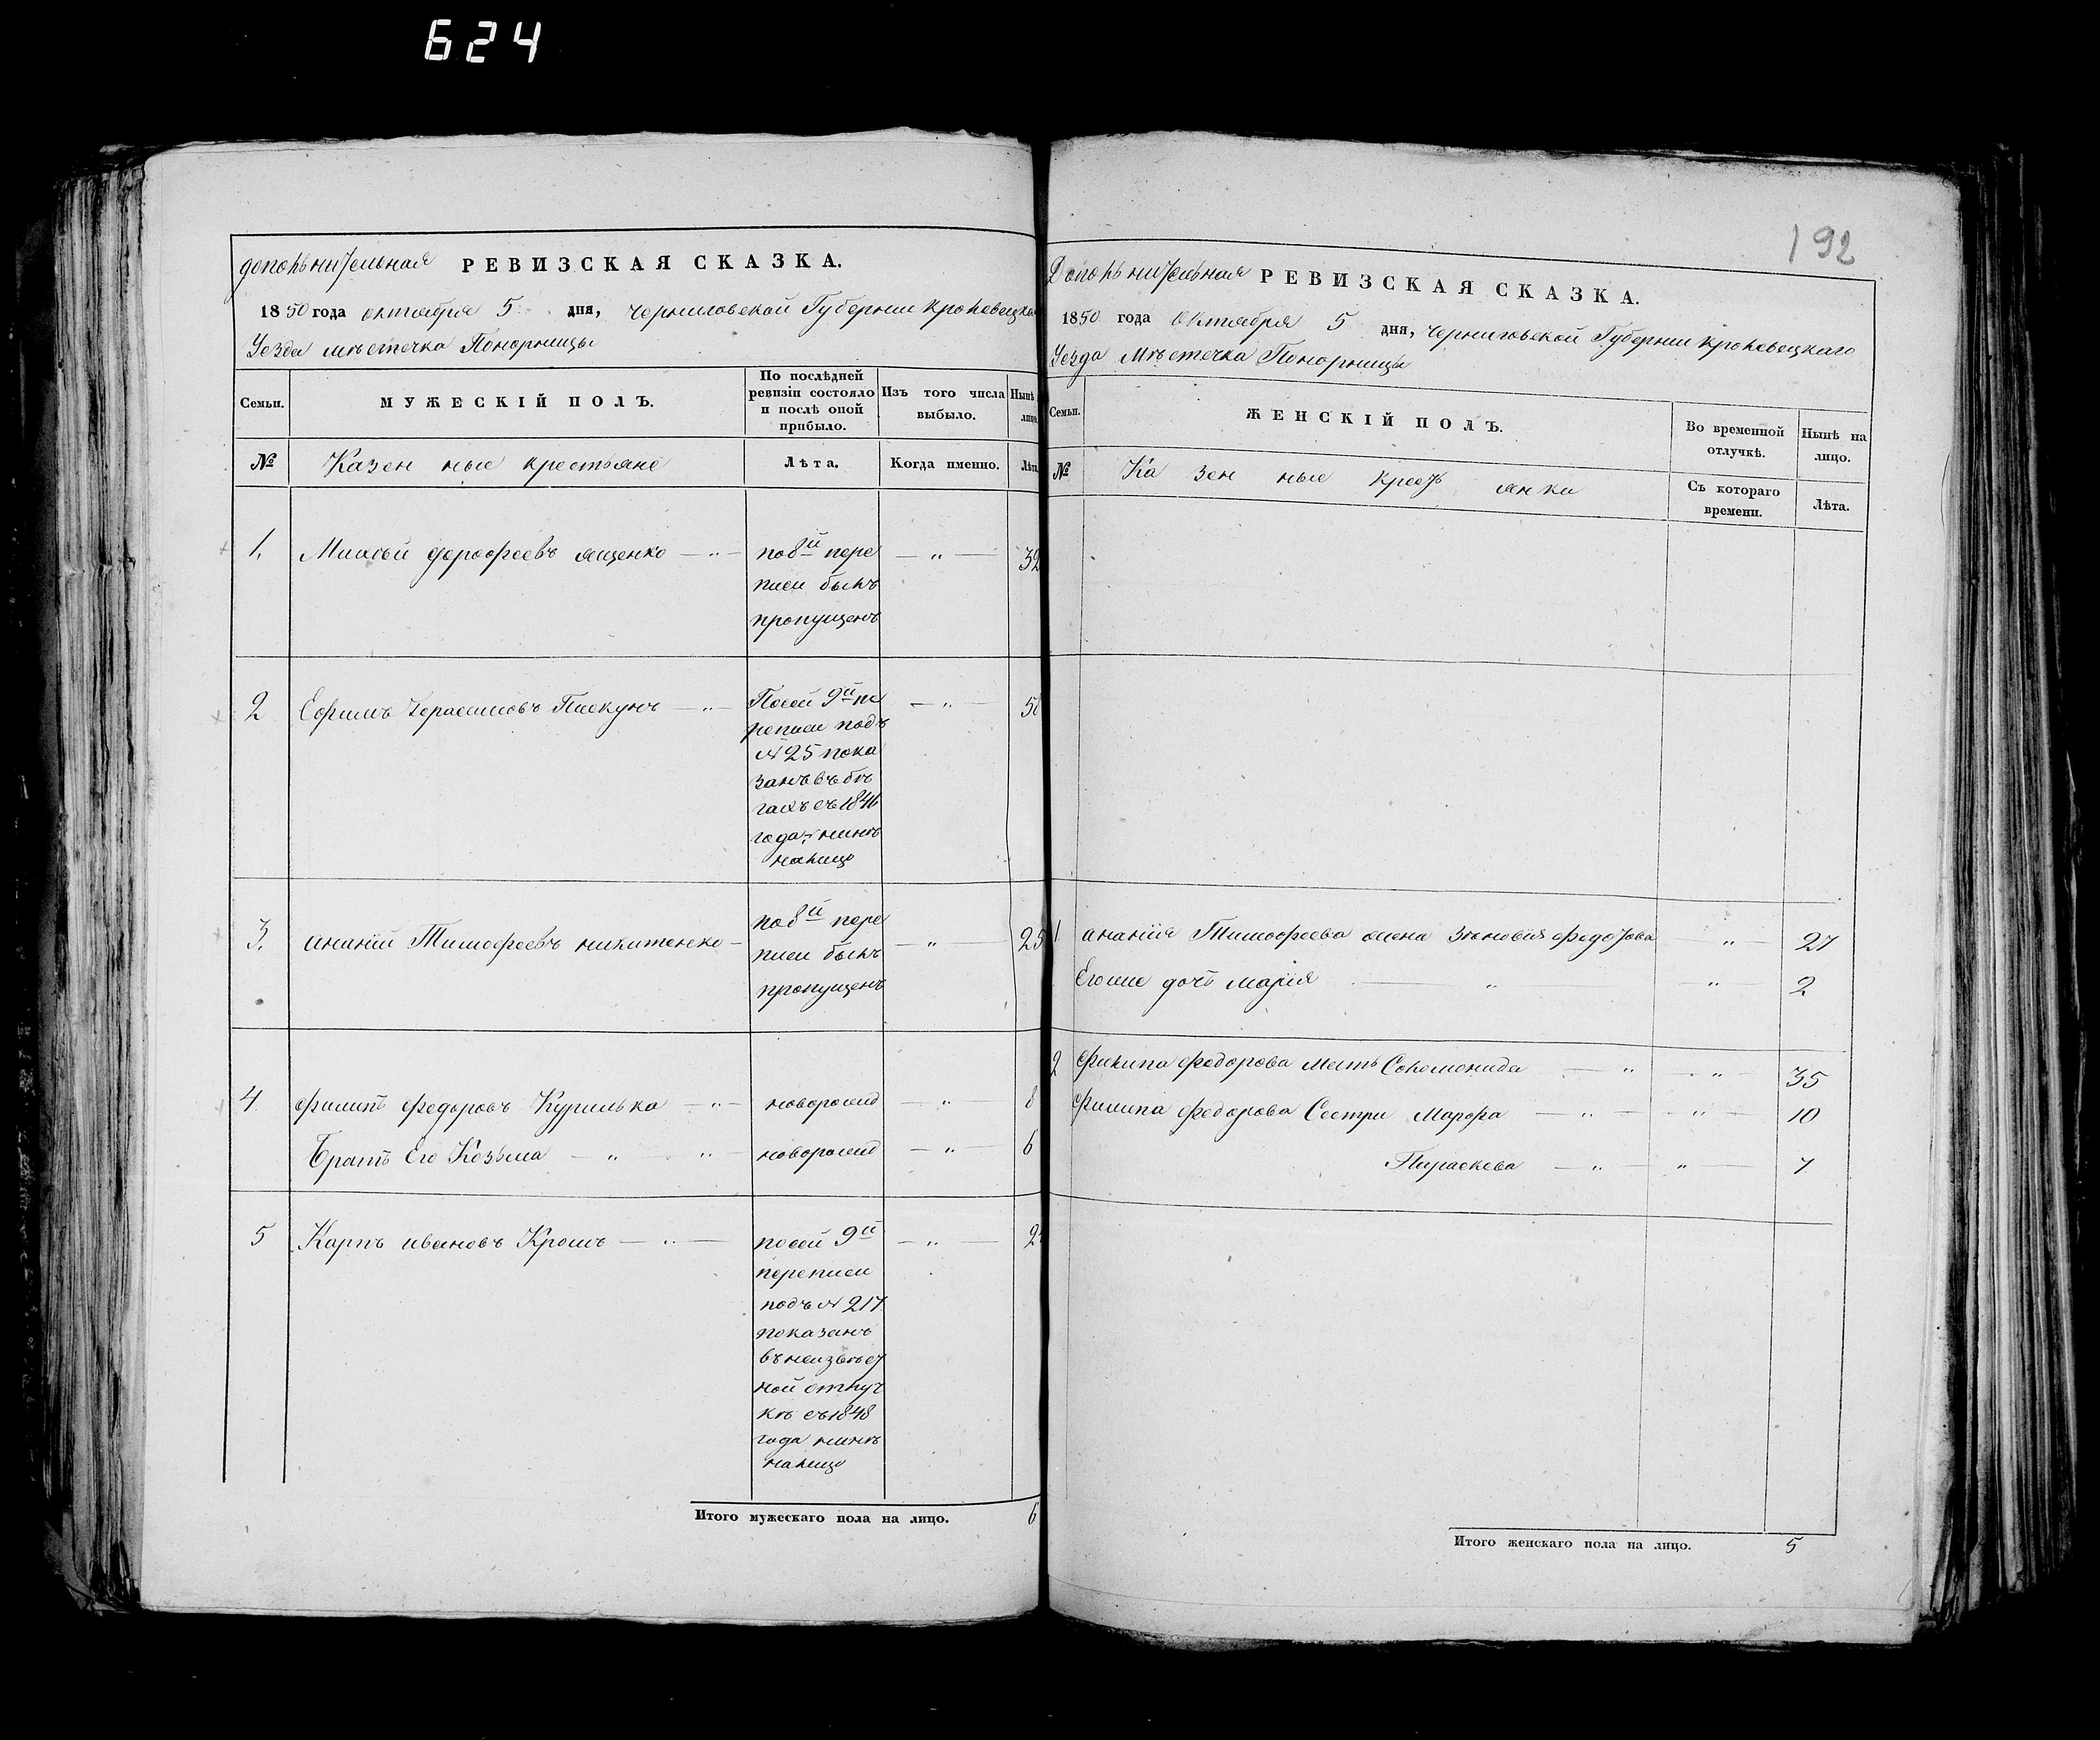 624
192
дополънительная РЕВИЗСКАЯ СКАЗКА.
1850 года октября 5 дня, Черниговской Губернии Кролевецкаго
Уезда мъстечка Понорницы
Семьи.
МУЖЕСКІЙ ПОЛЪ.
По послѣдней ревизіи состояло и послѣ оной прибыло.
Изъ того числа выбыло.
Нынѣ лицо.
№
Казенные крестьяне
Лѣта.
Когда именно.
Лѣта.
1. ященко — „ — по 8й пере — „ — 32
писи былъ
пропущенъ
2 Ефимъ Герасимовъ Пискунъ — „ — По сей 9й пе — „ — 58
реписи подъ
№ 25 пока
занъ въ бѣ
гахъ съ 1846
года, нинѣ
налицо
3. ананій Тимофеевъ никитенко — по 8й пере — „ — 25
писи былъ
пропущенъ
4 Филипъ Федоровъ Курилька — „ —новорожд — „ — 8
Братъ Его Козьма — „ — „ — новорожд — „ — 6
5 Карпъ ивановъ — „ — по сей 9й — „ —
переписи
подъ № 217
показанъ
въ неизвѣст
ной отлуч
кѣ съ 1848
года нинѣ
налицо
Итого мужескаго пола на лицо. 6
Дополънительная РЕВИЗСКАЯ СКАЗКА.
1850 года Октября 5 дня, Черниговской Губернии Кролевецкаго
Уезда Мъстечка Понорницы
Семьи.
ЖЕНСКІЙ ПОЛЪ.
Во временной отлучкѣ.
Нынѣ на лицо.
№
Казенные крестьянки
Съ котораго времени.
Лѣта.
1 анания Тимофеева жена Зѣновия Федорова — „ — 27
Егоже дочь мария — „ — „ — 2
2 Филипа Федорова Мать Соломонида — „ — „ — 35
Филипа Федорова Сестри Марфа — „ — „ — 10
Параскева — „ — „ — 7
Итого женскаго пола на лицо. 5